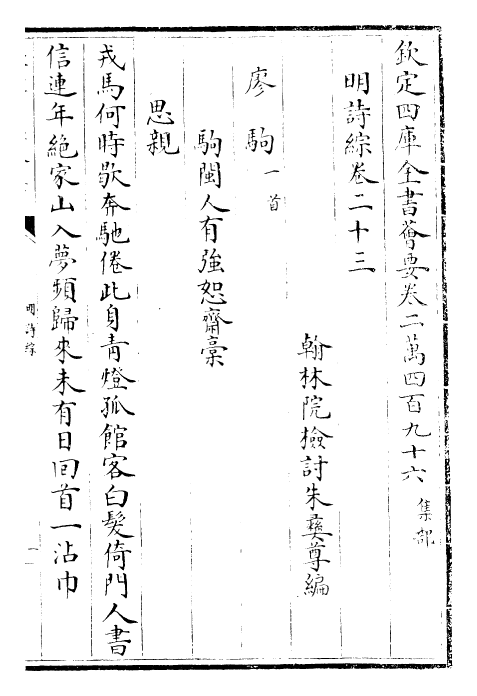 欽定四庫全書薈要卷二萬四百九十六 集部
明詩綜卷二十三
翰林院檢討朱彝尊編
廖駒 一首
駒閩人有強恕齋稾
思親
戎馬何時歇奔馳倦此身青燈孤館客白髮倚門人書
信連年絶家山入夢頻歸來未有日回首一沾巾
明詩綜
一